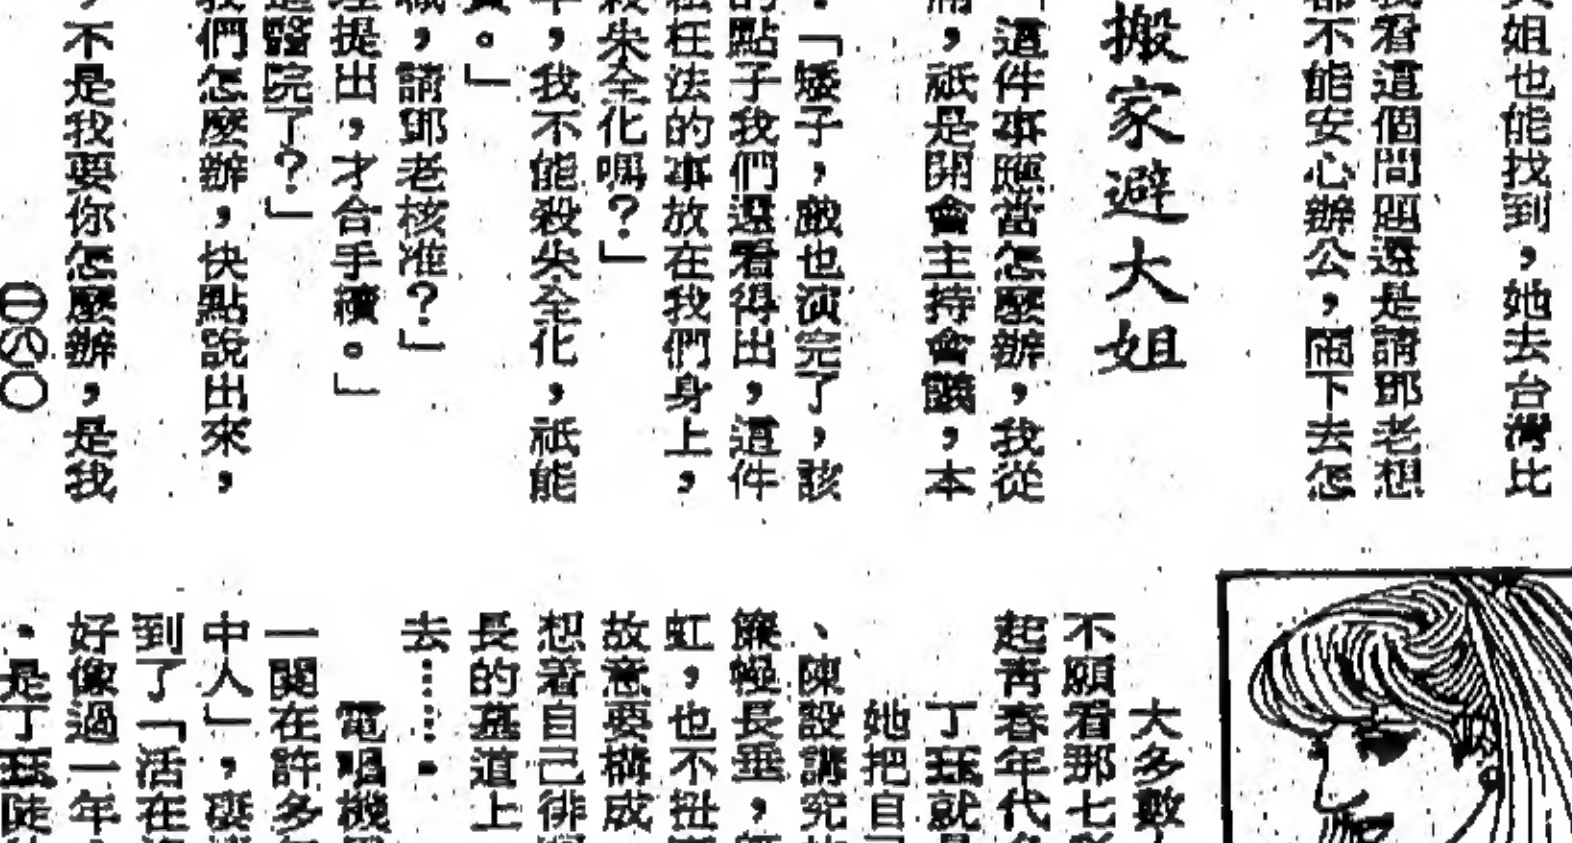 姐也能找到，她去台灣比
我看這個問題還是請鄧老想
都不能安心辦公，鬧下去怎
搬家避大姐
這件事應當怎麼辦，我從
，祇是開會主持會議，本
：「矮子，戲也演完了，該
的點子我們還看得出，這件
枉法的事放在我們身上，
殺朱全化嗎？」
，我不能殺朱全化，祇能
。」
職，請鄧老核准？」
理提出，才合手續。」
進醫院了？」
我們怎麼辦，快點說出來，
，不是我要你怎麼辦，是我
一八〇
大多數
不願看那七
起青春年代
丁玨就
她把自
、陳設講究
簾幔長垂，
虹，也不扭
故意要構成
想着自己徘
長的墓道上
去……．
電唱機
一闋在許多
中人」，
到了「活在
好像過一年
．是丁玨陡